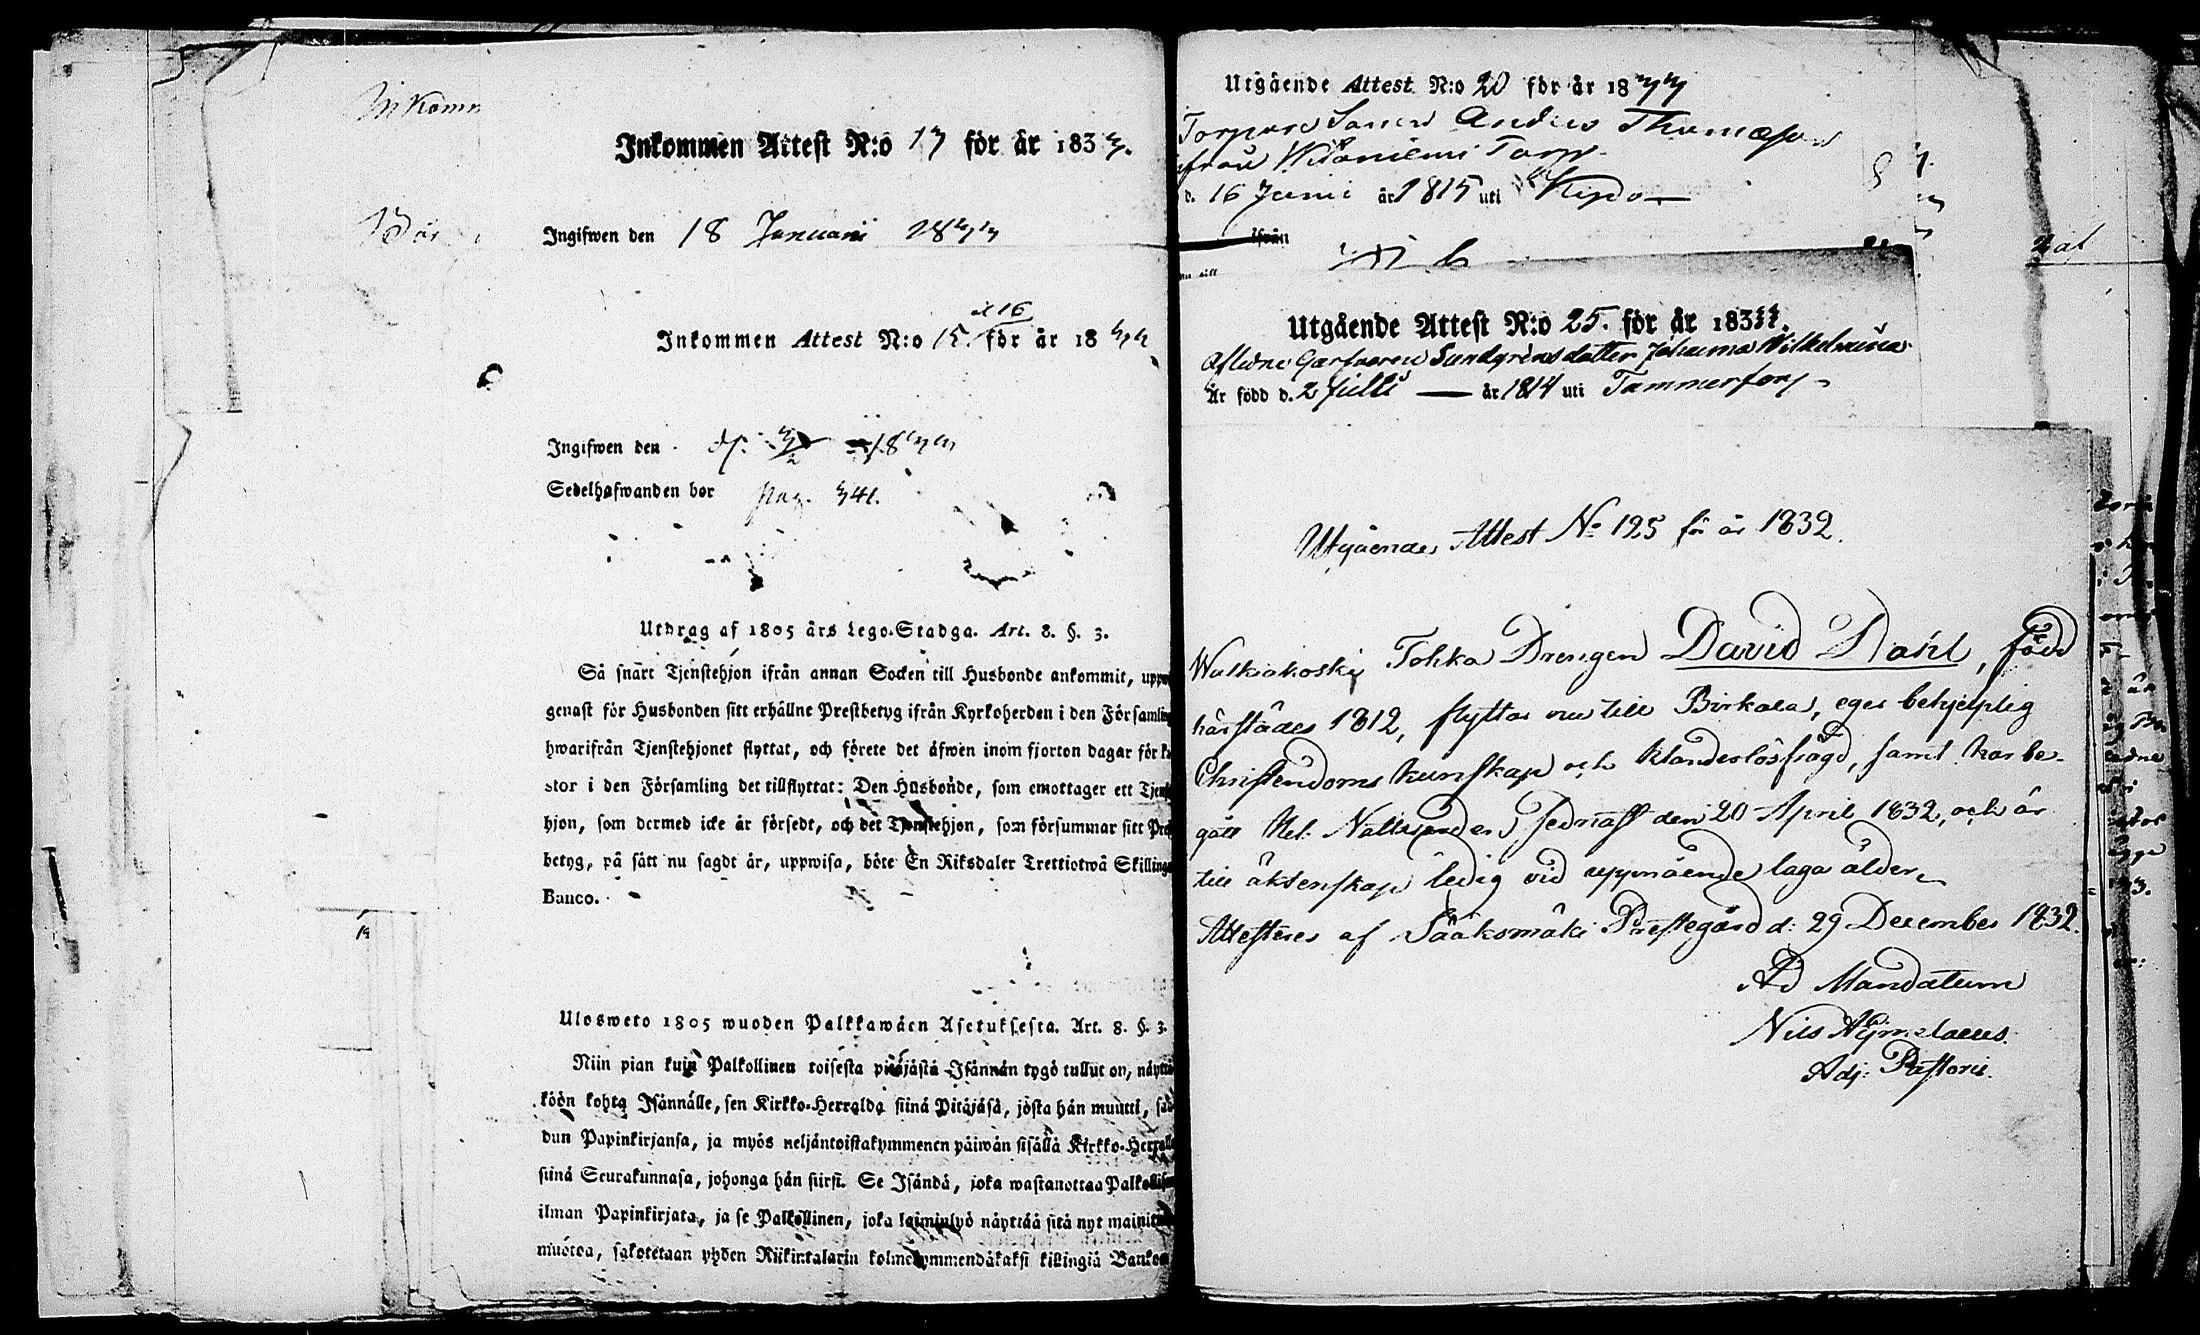 Inkomm
Inkommen Attest N:o 17 för år 1833.
Bör
Ingifwen den 18 Januarii 1833
Inkommen Attest N:o 15. & 16 för år 1833
Ingifwen den 1833
Sedelhafwanden bor pag. 341.
Utdrag af 1805 års Lego-Stadga. Art. 8. §. 3.
Så snart Tjenstehjon ifrån annan Socken till Husbonde ankommit, uppw
genast för Husbonden sitt erhållne Prestbetyg ifrån Kyrkoherden i den Församling
hwarifrån Tjenstehjonet flyttat, och förete det äfwen inom fjorton dagar för
stor i den Församling det tillflyttat: Den Husbonde, som emottager ett Tjenste
hjon, som dermed icke är försedt, och det Tjenstehjon, som försummar sitt Prest
betyg, på sätt nu sagdt är, uppwisa, böte En Riksdaler Trettiotwå Skillingar
Banco.
Ulosweto 1805 wuoden Palkkawäen Asetuksesta. Art. 8. §. 3.
Niin pian kuin Palkollinen toisesta pitäjästä Isännän tygö tullut on, näyttä
köön kohta Isännälle, sen Kirkko-Herralda siinä Pitäjäsä, josta hän muutti, saa
dun Papinkirjansa, ja myös neljäntoistakymmenen päiwän sisällä Kirkko-Herralle
siinä Seurakunnasa, johonga hän siirsi. Se Isändä, joka wastanottaa Palkollisen
ilman Papinkirjata, ja se Palkollinen, joka laiminlyö näyttää sitä nyt mainitu
muotoa, sakotetaan yhden Riikintalarin kolmekymmendäkaksi killingiä Bankos
Utgående Attest N:o 20 för år 1833
Torpare Sonen Anders Thomæson
ifrån Torp
d. 16 Junii år 1815 uti
ifrån
Utgående Attest N:o 25. för år 1833.
Aflidne Garfvaren Sundgréns dotter Johanna Wilhelmina
Är född d. 2 Julii år 1814 uti Tammerfors
Utgående Attest No 125 för år 1832.
Walkiakoski Tohka Drengen David Dahl, född
härstädes 1812, flyttar nu till Birkala, eger behjelplig
Christendoms kunskap och klanderlös frägd, samt har be-
gått Hel. Nattvarden sednast den 20 April 1832, och är
till äktenskap ledig vid uppnående laga ålder.
Attesteres af Sääksmäki Prestegård d: 29 December 1832.
Ad Mandatum
Nils
Adj: Pastoris.